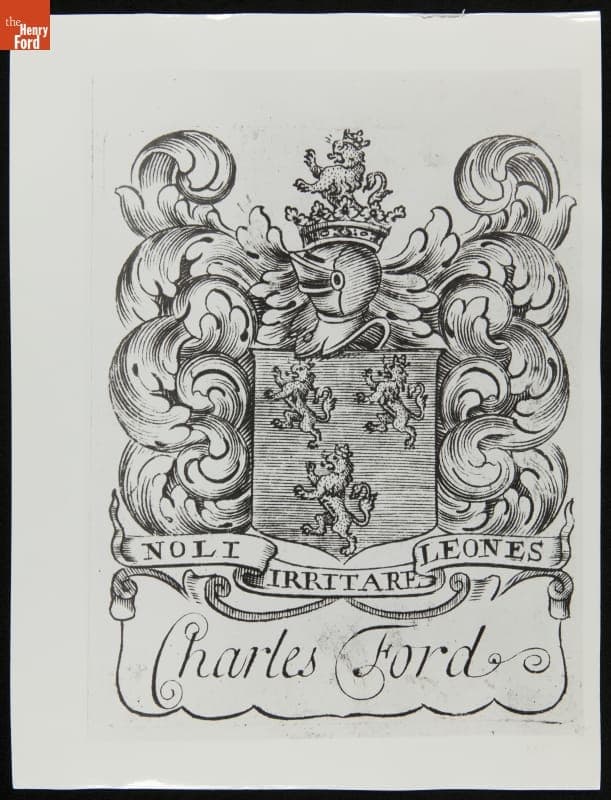 the
Henry
Ford
NOLI IRRITARE LEONES
Charles Ford